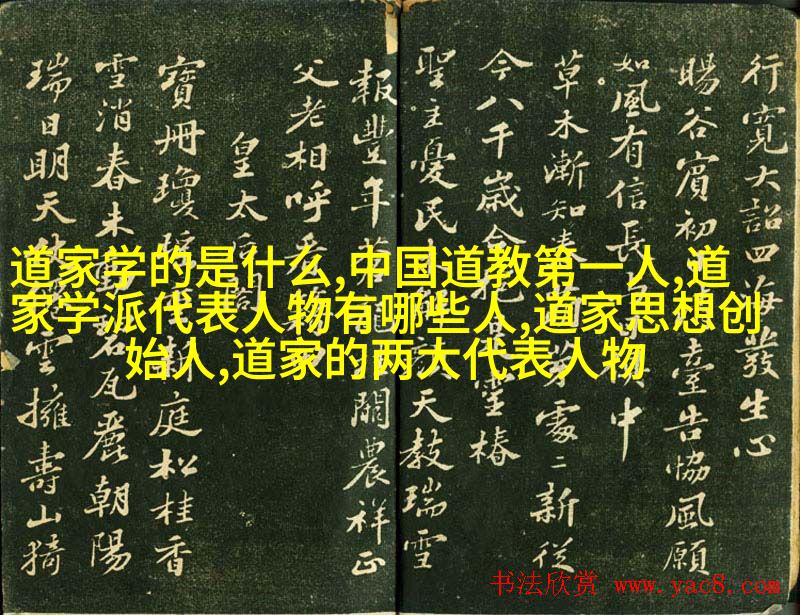 行寬大詔四海發生心
暘谷賓初臺告協風願
如風有信長中
草木漸知春芽處ニ新從
今八千歲合抱靈椿
聖主憂民天教瑞雪
報豐年關農祥正
父老相呼看
皇太后閣
寶冊瓊庭松桂香
雪消春未動碧瓦麗朝陽
瑞日明天雲擁壽山猗
道家学的是什么,中国道教第一人,道
家学派代表人物有哪些人,道家思想创
始人,道家的两大代表人物
书法欣赏 www.yac8.com